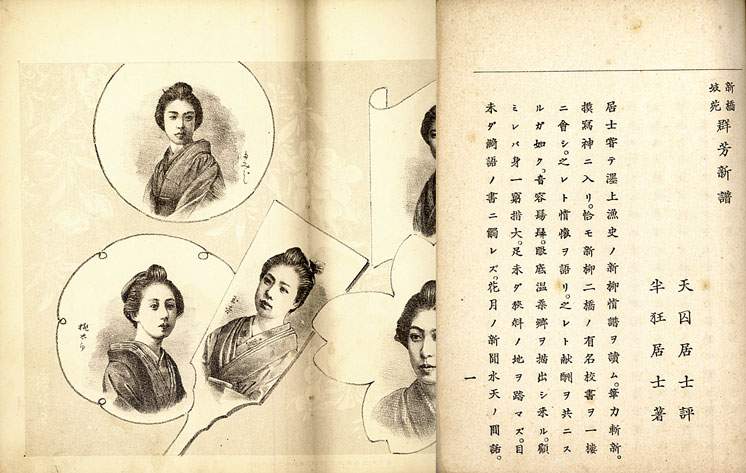 新橋
群芳新譜
天囚居士評
半狂居士著
居士嘗テ濹上漁史ノ新柳情譜ヲ讀ム。筆力斬新。
摸寫神ニ入リ。恰モ新柳二橋ノ有名校書ヲ一樓
ニ會シ。之レト情懐ヲ語リ。之レト献酬ヲ共ニス
ルガ如ク。音容眼底温柔郷ヲ描出シ来ル。顧
ミレバ身一窮措大。足未ダ狹斜ノ地ヲ踏マズ。目
未ダ綺語ノ書ニ觸レズ。花月ノ新聞水天ノ間話。
一